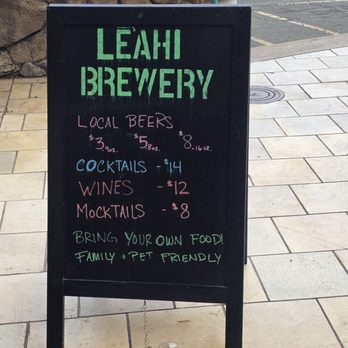 LEAHI
BREWERY
LOCAL BEERS
$3 4oz. $5 8oz. $8. 16oz.
COCKTAILS - $14
WINES - $12
MOCKTAILS - $8
BRING YOUR OWN FOOD!
FAMILY + PET FRIENDLY